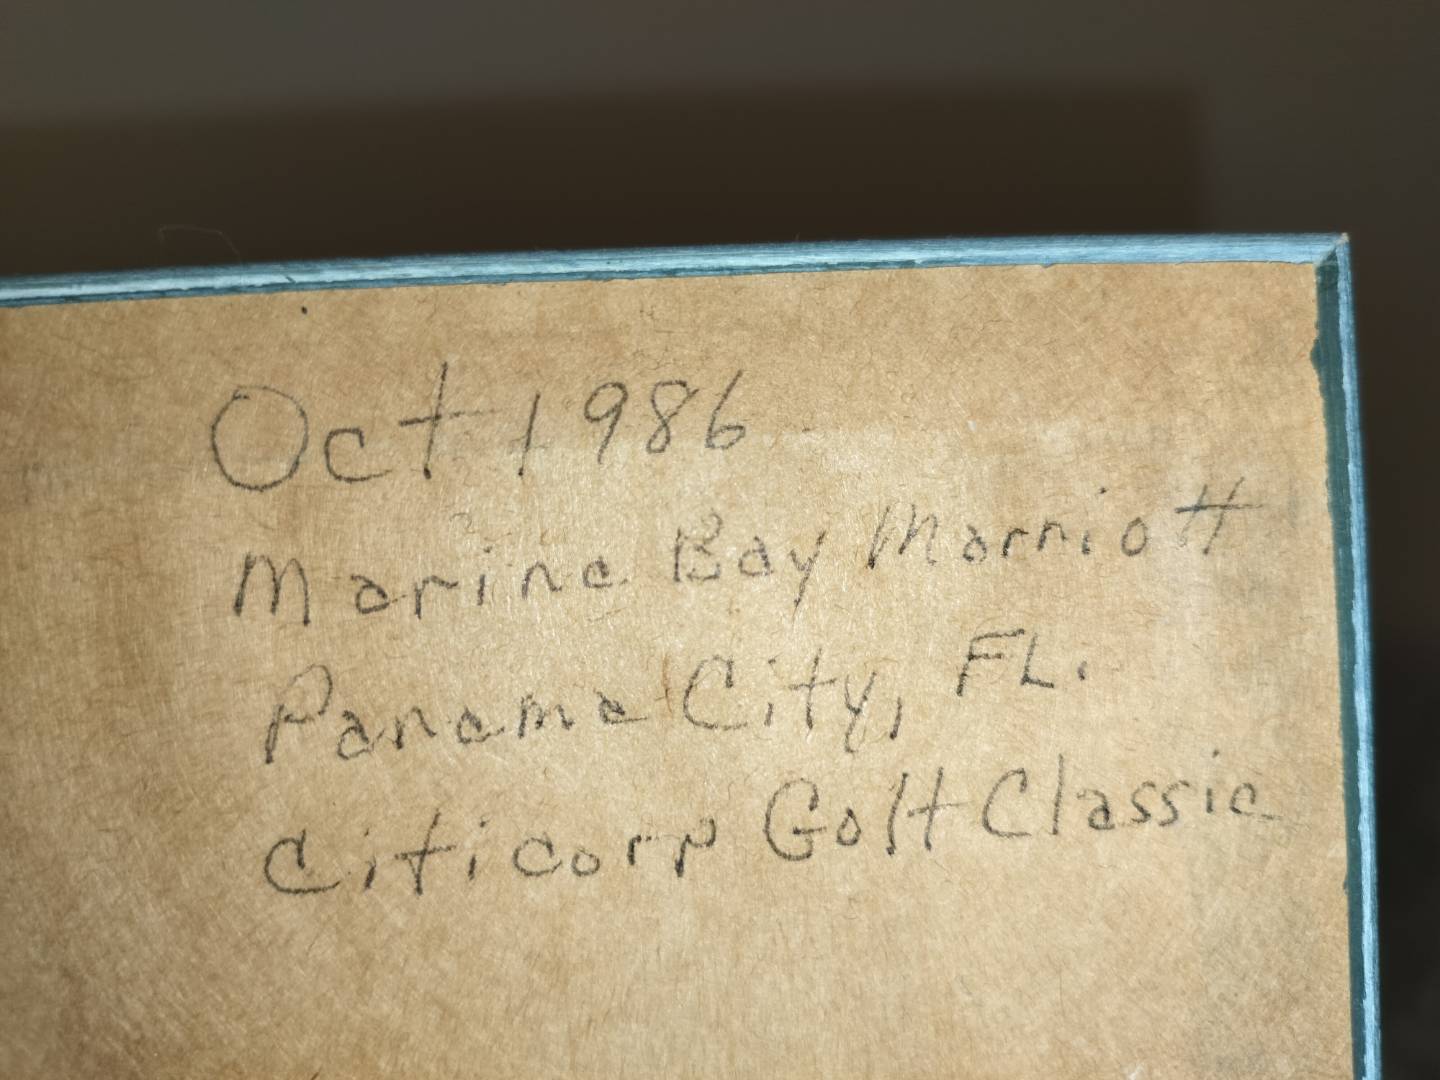 Oct 1986
Marine Bay Marriott
Panama City, FL.
Citicorp Golf Classic